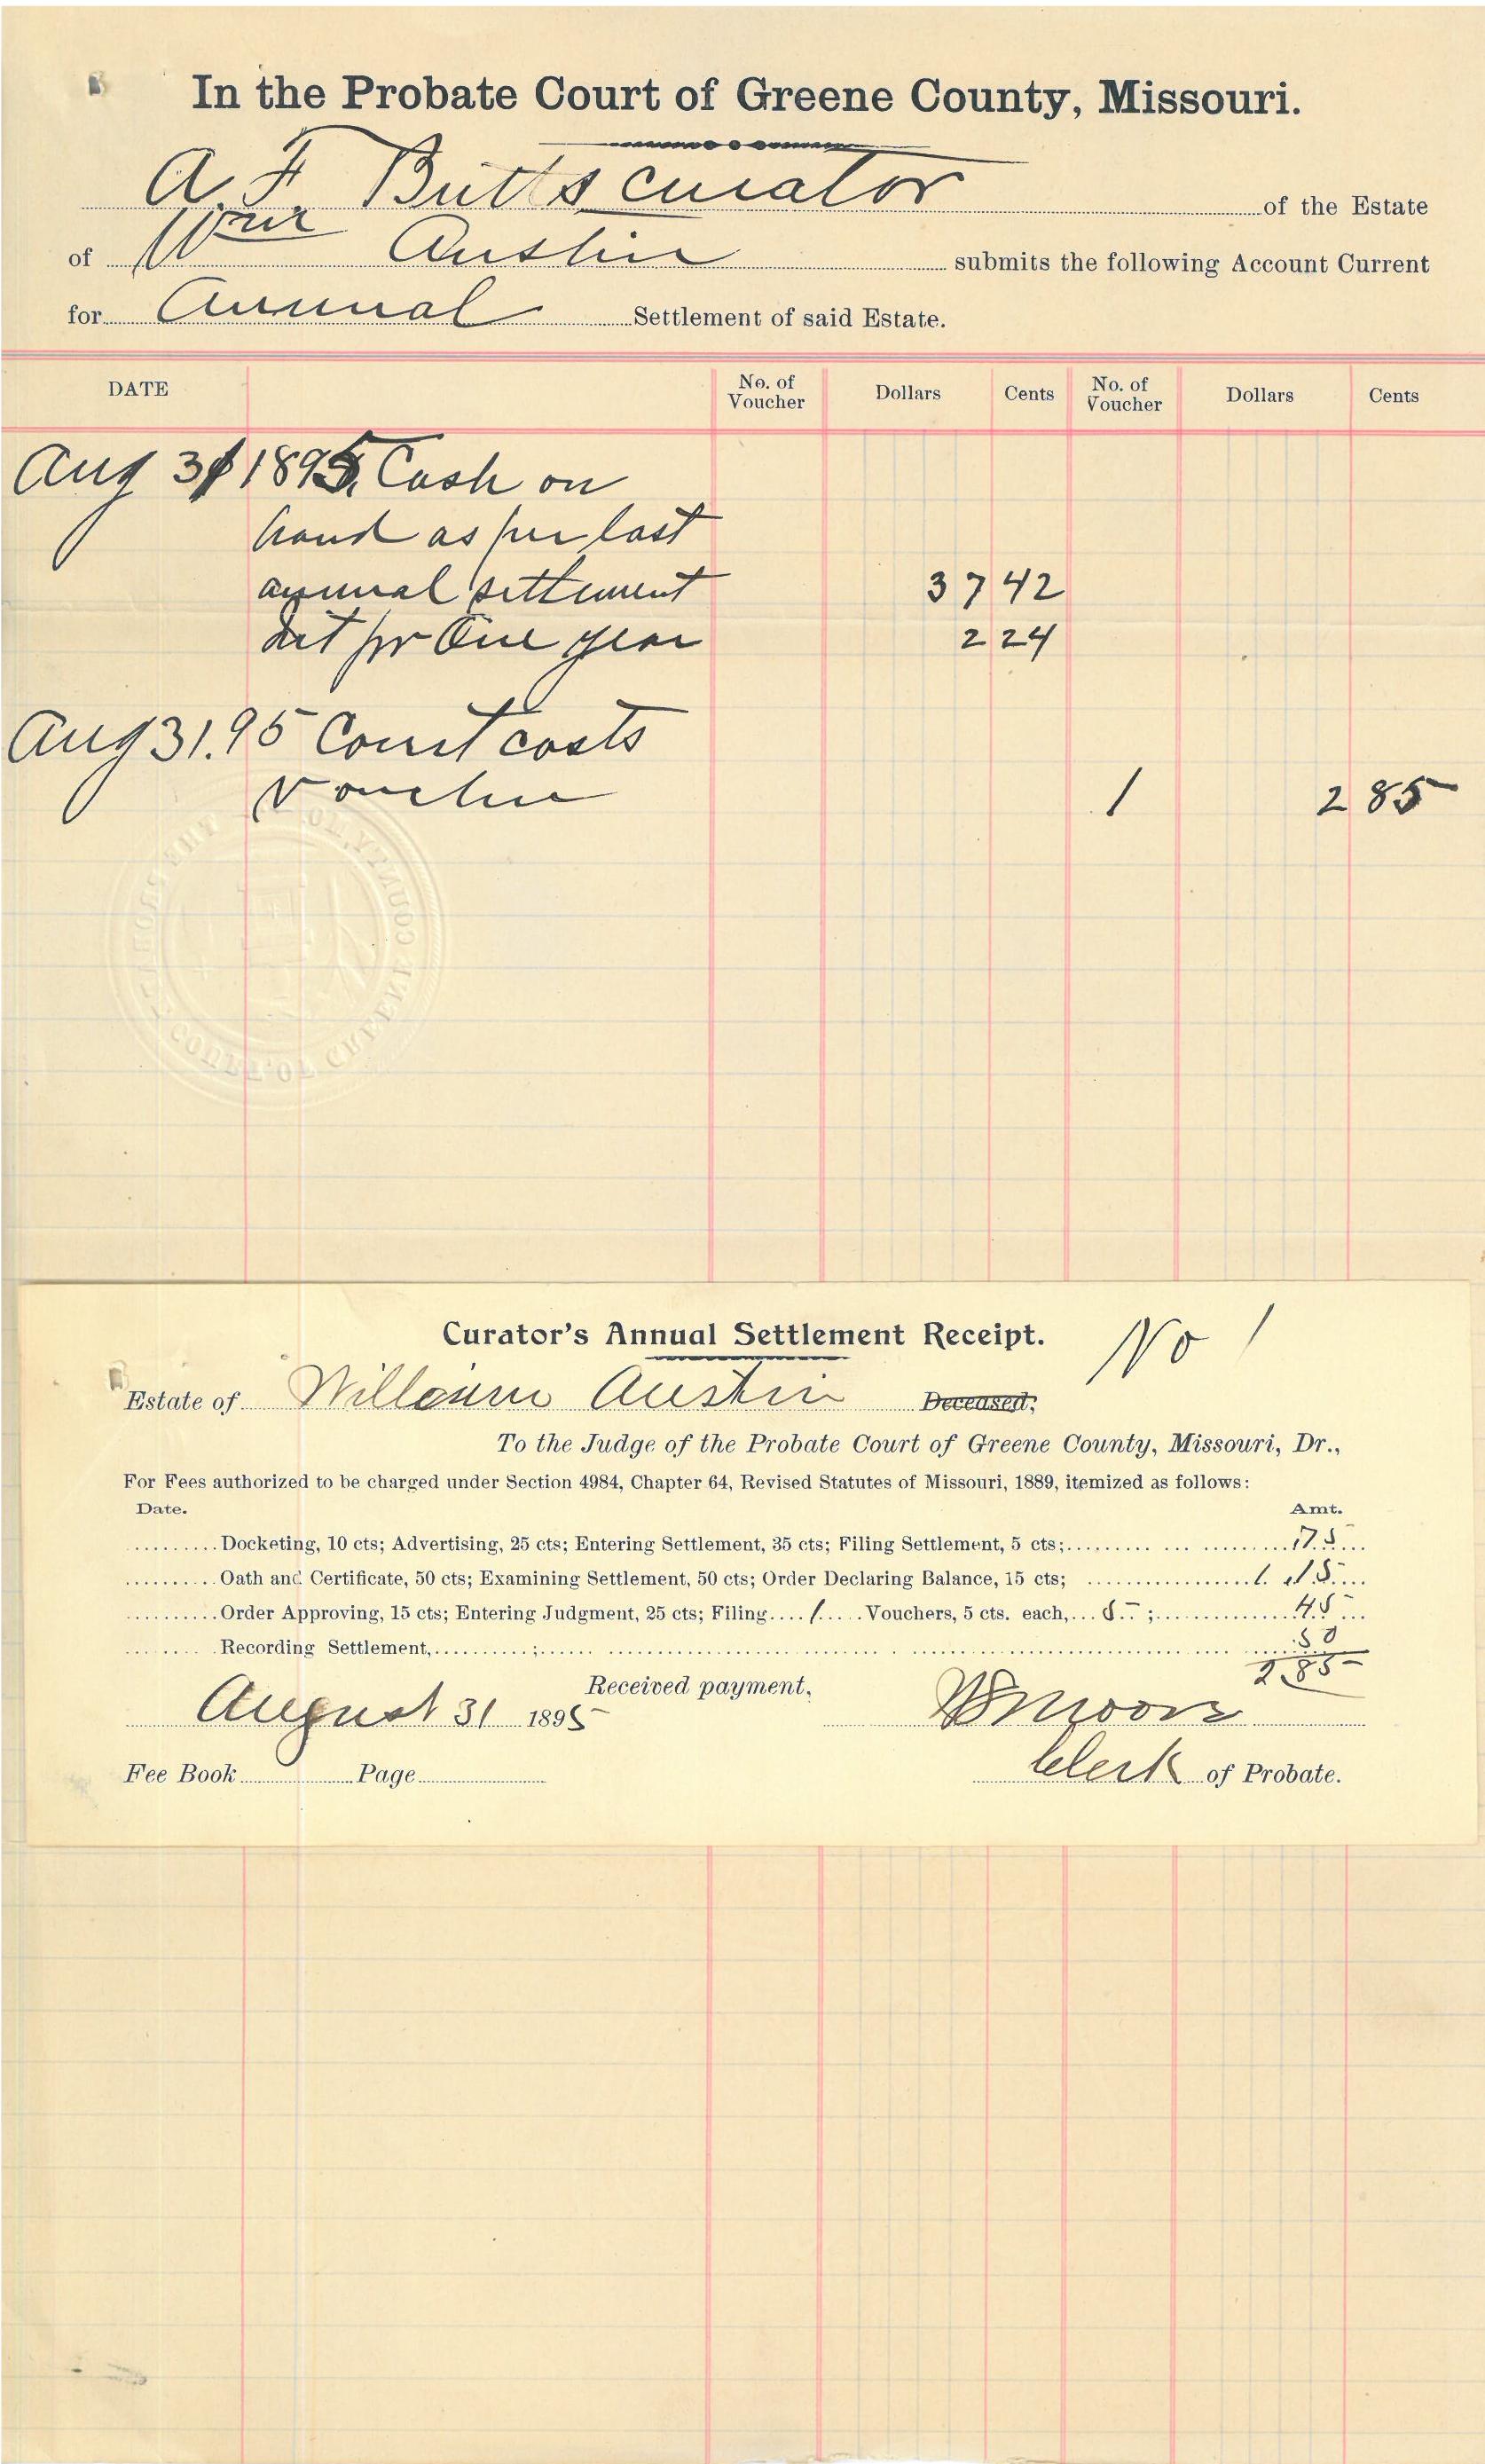 In the Probate Court of Greene County, Missouri.
A. F. Butts curator of the Estate
of Wm Austin submits the following Account Current
for Annual Settlement of said Estate.
DATE No. of Voucher Dollars Cents No. of Voucher Dollars Cents
Aug 31 1895, Cash on
hand as per last
annual settlement 37 42
Int for One year 2 24
Aug 31.95 Court costs
Voucher 1 2 85
THE PROBATE COURT OF GREENE COUNTY, MO.
Curator's Annual Settlement Receipt. No 1
Estate of William Austin Deceased,
To the Judge of the Probate Court of Greene County, Missouri, Dr.,
For Fees authorized to be charged under Section 4984, Chapter 64, Revised Statutes of Missouri, 1889, itemized as follows:
Date. Amt.
Docketing, 10 cts; Advertising, 25 cts; Entering Settlement, 35 cts; Filing Settlement, 5 cts; 75
Oath and Certificate, 50 cts; Examining Settlement, 50 cts; Order Declaring Balance, 15 cts; 1.15
Order Approving, 15 cts; Entering Judgment, 25 cts; Filing 1 Vouchers, 5 cts. each, 5 ; 45
Recording Settlement, ; 50
2.85
Received payment,
August 31 1895 Moore
Fee Book Page Clerk of Probate.